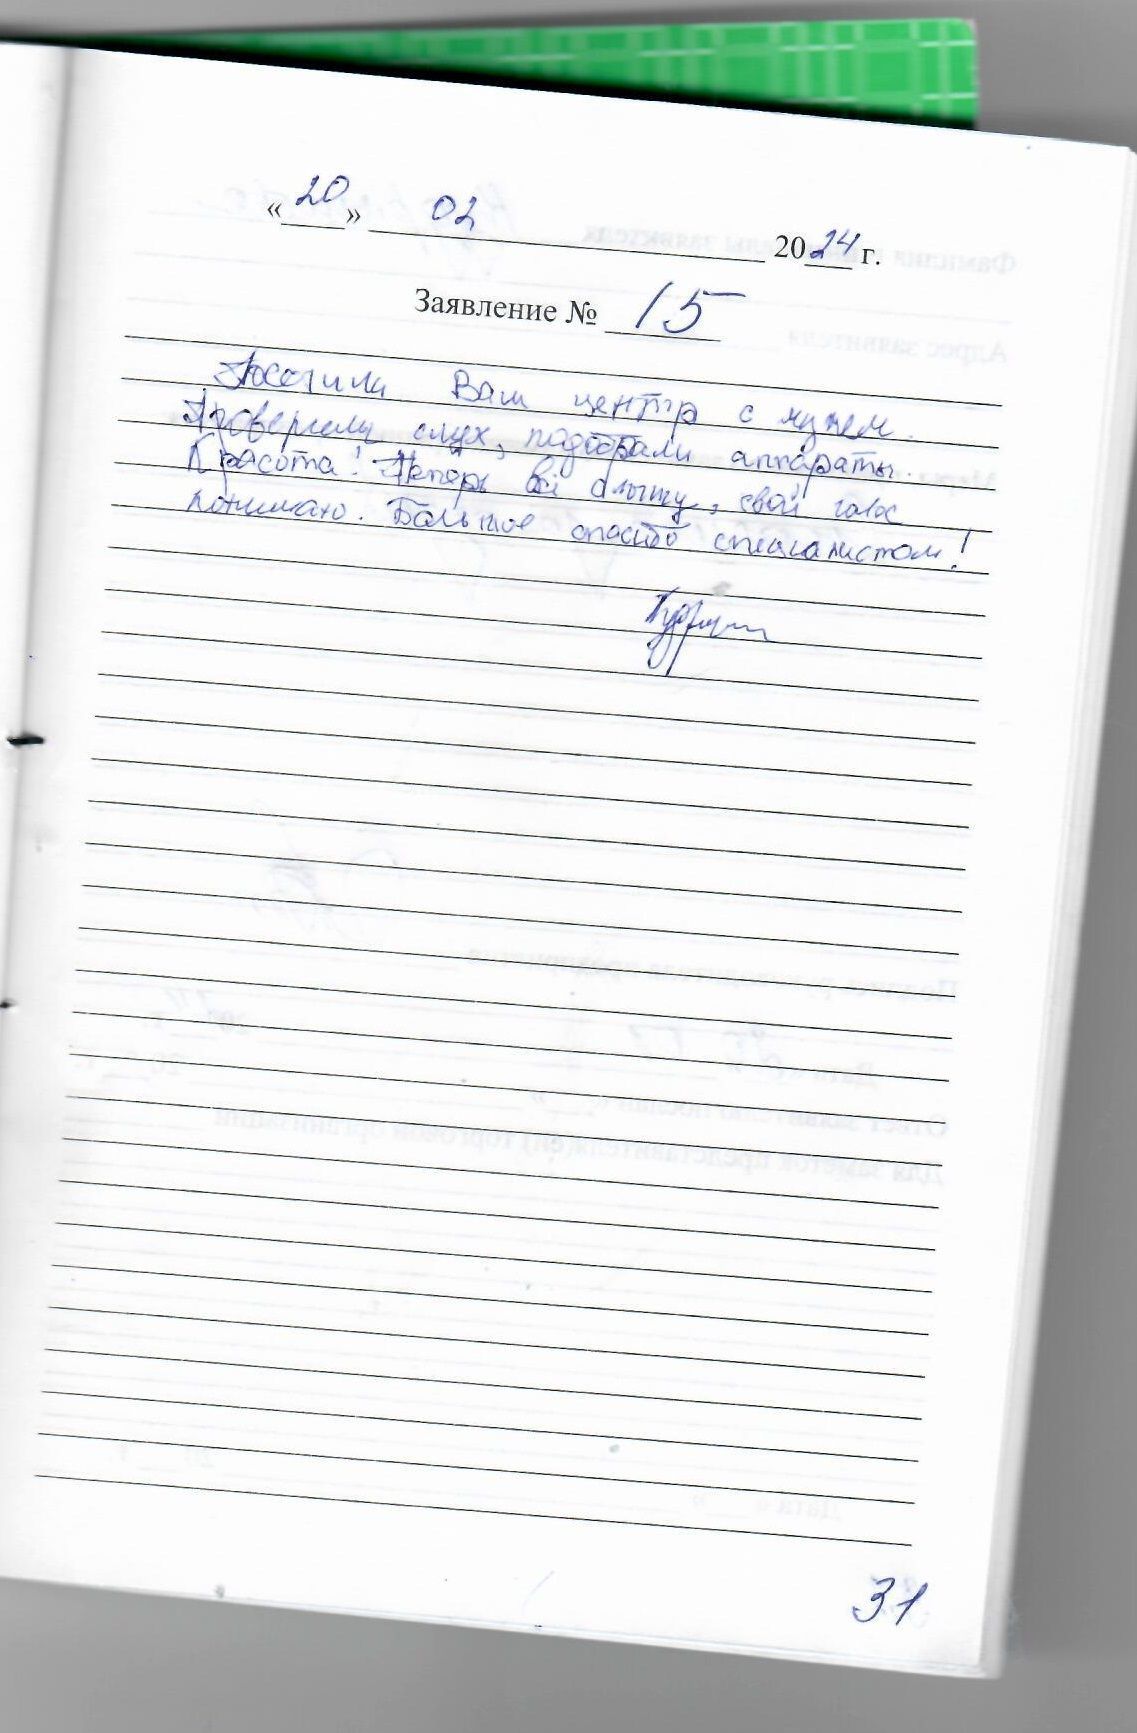 «20» 02 2024 г.
Заявление № 15
Посетили Ваш центр с мужем.
Проверили слух, подобрали аппараты.
Красота! Теперь всё слышу, свой голос
понимаю. Большое спасибо специалистом!
31